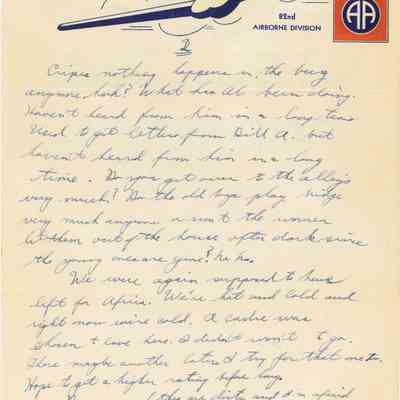 82nd
AIRBORNE DIVISION
AA
2
Cripes nothing happens in the burg
anymore, huh? What has Al been doing.
Haven't heard from him in a long time
Used to get letters from Bill A. but
haven't heard from him in a long
time. Do you get over to the alleys
very much? Do the old boys play
very much anymore or won't the women
let them out of the house after dark since
the young ones are gone? ha ha.
We were again supposed to have
left for Africa. We're hot and cold and
right now we're cold. A cadre was
chosen to leave here. I didn't want to go.
There maybe another later & try for that one too.
Hope to get a higher rating before long.
they are and I'm afraid